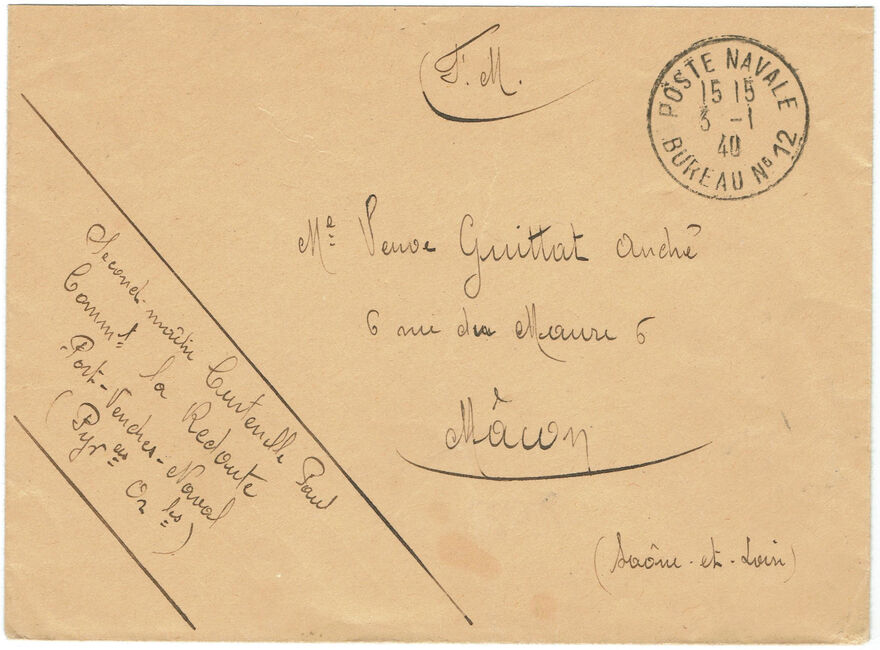 F. M.
POSTE NAVALE
15 15
3 - 1
40
BUREAU N° 12
Me Veuve Guittat André
6 rue du Maure 6
Mâcon
(Saône-et-Loire)
Second-maître Paul
Commt la Redoute
Port-Vendres-Naval
(Pyrées Orles)